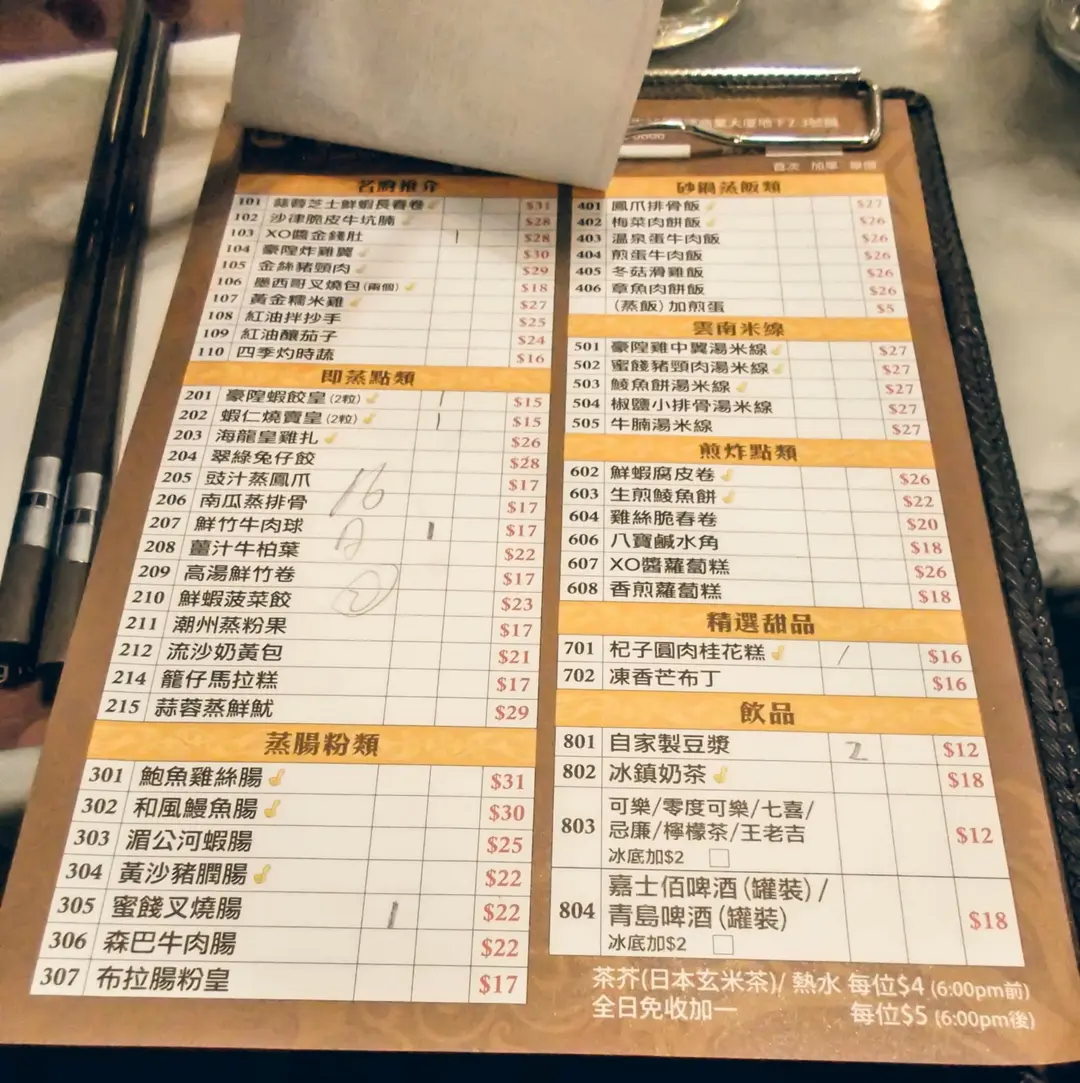 商業大廈地下2,3號舖
首次 加單 單價
名廚推介
101 蒜蓉芝士鮮蝦長春卷 $31
102 沙律脆皮牛坑腩 $28
103 XO醬金錢肚 1 $28
104 豪隍炸雞翼 $30
105 金絲豬頸肉 $29
106 墨西哥叉燒包(兩個) $18
107 黃金糯米雞 $27
108 紅油拌抄手 $25
109 紅油釀茄子 $24
110 四季灼時蔬 $16
即蒸點類
201 豪隍蝦餃皇(2粒) 1 $15
202 蝦仁燒賣皇(2粒) 1 $15
203 海龍皇雞扎 $26
204 翠綠兔仔餃 $28
205 豉汁蒸鳳爪 $17
16
206 南瓜蒸排骨 $17
207 鮮竹牛肉球 1 $17
2
208 薑汁牛柏葉 $22
209 高湯鮮竹卷 $17
2
210 鮮蝦菠菜餃 $23
211 潮州蒸粉果 $17
212 流沙奶黃包 $21
214 籠仔馬拉糕 $17
215 蒜蓉蒸鮮魷 $29
蒸腸粉類
301 鮑魚雞絲腸 $31
302 和風鰻魚腸 $30
303 湄公河蝦腸 $25
304 黃沙豬膶腸 $22
305 蜜餞叉燒腸 1 $22
306 森巴牛肉腸 $22
307 布拉腸粉皇 $17
砂鍋蒸飯類
401 鳳爪排骨飯 $27
402 梅菜肉餅飯 $26
403 溫泉蛋牛肉飯 $26
404 煎蛋牛肉飯 $26
405 冬菇滑雞飯 $26
406 章魚肉餅飯 $26
(蒸飯)加煎蛋 $5
雲南米線
501 豪隍雞中翼湯米線 $27
502 蜜餞豬頸肉湯米線 $27
503 鯪魚餅湯米線 $27
504 椒鹽小排骨湯米線 $27
505 牛腩湯米線 $27
煎炸點類
602 鮮蝦腐皮卷 $26
603 生煎鯪魚餅 $22
604 雞絲脆春卷 $20
606 八寶鹹水角 $18
607 XO醬蘿蔔糕 $26
608 香煎蘿蔔糕 $18
精選甜品
701 杞子圓肉桂花糕 / $16
702 凍香芒布丁 $16
飲品
801 自家製豆漿 2 $12
802 冰鎮奶茶 $18
803 可樂/零度可樂/七喜/
忌廉/檸檬茶/王老吉 $12
冰底加$2
804 嘉士佰啤酒(罐裝)/
青島啤酒(罐裝) $18
冰底加$2
茶芥(日本玄米茶)/熱水 每位$4 (6:00pm前)
全日免收加一 每位$5 (6:00pm後)